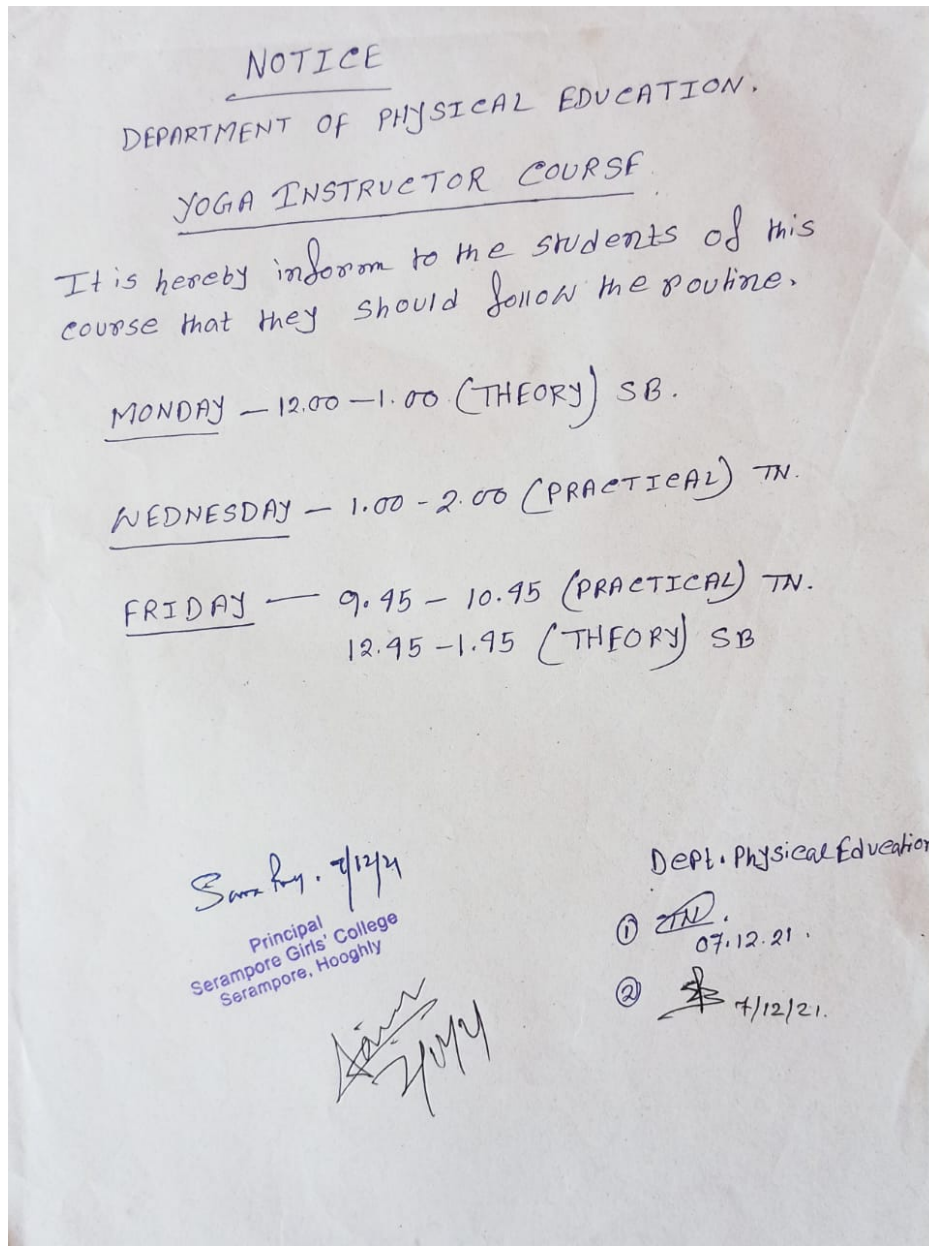 NOTICE
DEPARTMENT OF PHYSICAL EDUCATION.
YOGA INSTRUCTOR COURSE
It is hereby inform to the students of this
course that they should follow the routine.
MONDAY – 12.00 – 1.00 (THEORY) SB.
WEDNESDAY – 1.00 - 2.00 (PRACTICAL) TN.
FRIDAY — 9.45 – 10.45 (PRACTICAL) TN.
12.45 – 1.45 (THEORY) SB
7/12/21
Principal
Serampore Girls' College
Serampore, Hooghly
Dept. Physical Education
① TN.
07.12.21.
② SB 7/12/21.